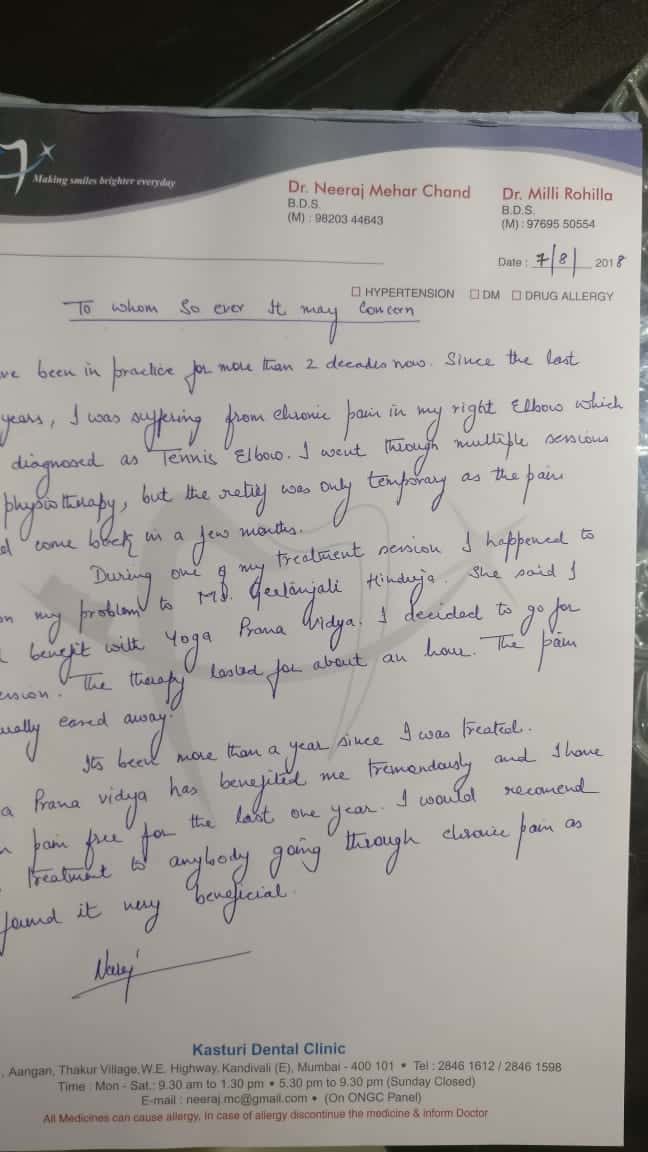 Making smiles brighter everyday
Dr. Neeraj Mehar Chand
B.D.S.
(M) : 98203 44643
Dr. Milli Rohilla
B.D.S.
(M) : 97695 50554
Date : 7/8/ 2018
HYPERTENSION DM DRUG ALLERGY
To whom so ever It may Concern
ve been in practice for more than 2 decades now. Since the last
years, I was suffering from chronic pain in my right Elbow which
diagnosed as Tennis Elbow. I went through multiple sessions
physiotherapy, but the relief was only temporary as the pain
d come back in a few months.
During one of my treatment session I happened to
on my problem to Ms. Geetanjali Hinduja. She said I
benefit with Yoga Prana Vidya. I decided to go for
ession. The therapy lasted for about an hour. The pain
ually eased away.
Its been more than a year since I was treated.
a Prana vidya has benefited me tremendously and I have
n pain free for the last one year. I would recomend
treatment to anybody going through chronic pain as
found it very beneficial.
Neeraj
Kasturi Dental Clinic
, Aangan, Thakur Village,W.E. Highway, Kandivali (E), Mumbai - 400 101 • Tel : 2846 1612 / 2846 1598
Time : Mon - Sat.: 9.30 am to 1.30 pm • 5.30 pm to 9.30 pm (Sunday Closed)
E-mail : neeraj.mc@gmail.com • (On ONGC Panel)
All Medicines can cause allergy, In case of allergy discontinue the medicine & inform Doctor